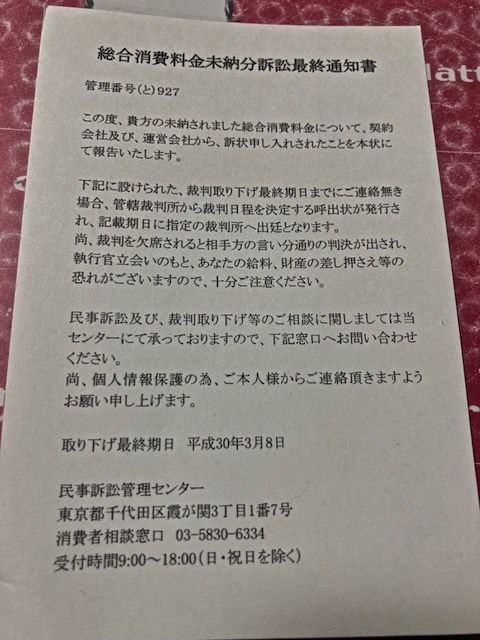 総合消費料金未納分訴訟最終通知書
管理番号(と)927
この度、貴方の未納されました総合消費料金について、契約
会社及び、運営会社から、訴状申し入れされたことを本状に
て報告いたします。
下記に設けられた、裁判取り下げ最終期日までにご連絡無き
場合、管轄裁判所から裁判日程を決定する呼出状が発行さ
れ、記載期日に指定の裁判所へ出廷となります。
尚、裁判を欠席されると相手方の言い分通りの判決が出され、
執行官立会いのもと、あなたの給料、財産の差し押さえ等の
恐れがございますので、十分ご注意ください。
民事訴訟及び、裁判取り下げ等のご相談に関しましては当
センターにて承っておりますので、下記窓口へお問い合わせ
ください。
尚、個人情報保護の為、ご本人様からご連絡頂きますよう
お願い申し上げます。
取り下げ最終期日 平成30年3月8日
民事訴訟管理センター
東京都千代田区霞が関3丁目1番7号
消費者相談窓口 03-5830-6334
受付時間9:00～18:00(日・祝日を除く)